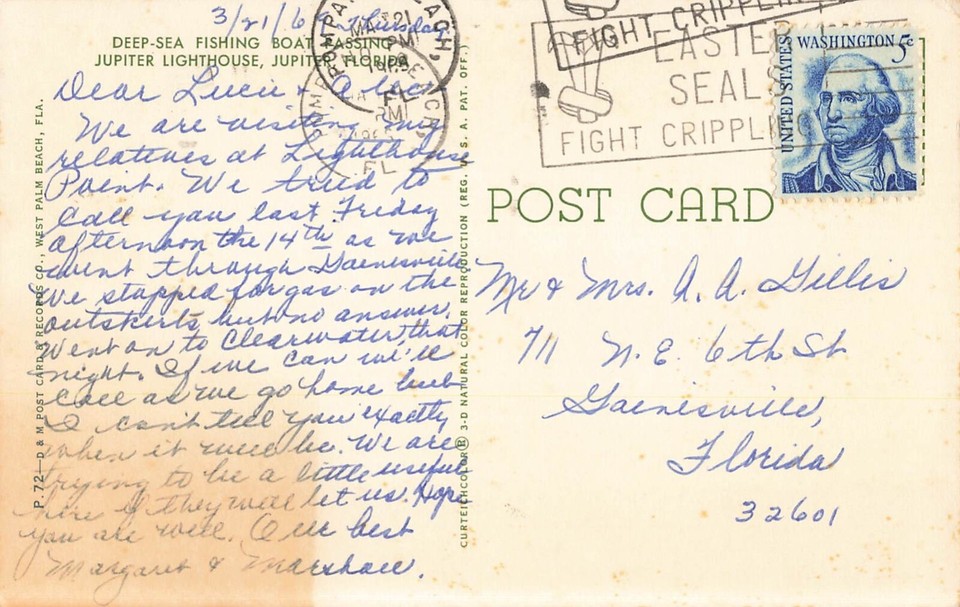 3/21/6 Thursday
DEEP-SEA FISHING BOAT PASSING
JUPITER LIGHTHOUSE, JUPITER, FLORIDA
Dear Lucie &
We are visiting my
relatives at Lighthouse
Point. We tried to
call you last Friday
afternoon the 14th as we
went through Gainesville
We stopped for gas on the
outskirts, but no answer.
Went on to Clearwater, that
night. If we can we'll
call as we go home but
I can't tell you exactly
when it will be. We are
trying to be a little useful
here if they will let us. Hope
you are well. Our best
Margaret & Marshall.
P. 72—D & M POST CARDS & RECORDS CO., WEST PALM BEACH, FLA.
CURTEICHCOLOR® 3-D NATURAL COLOR REPRODUCTION (REG. U. S. A. PAT. OFF.)
POMPANO BEACH, FL
MAR 21
PM
FIGHT CRIPPLING
EASTER
SEALS
FIGHT CRIPPLING
UNITED STATES
WASHINGTON 5c
POST CARD
Mr & Mrs. A. A. Gillis
711 N. E. 6th St
Gainesville,
Florida
32601